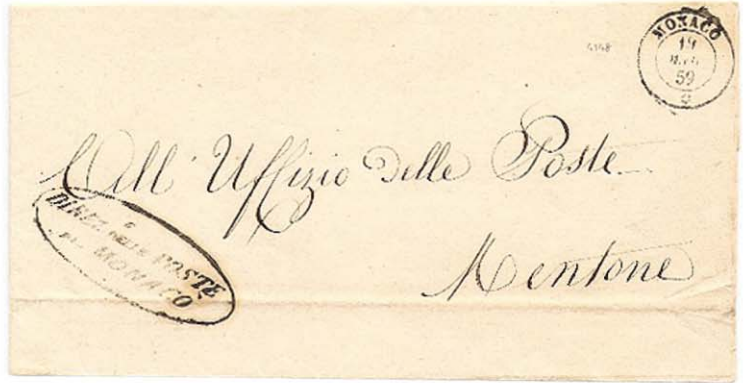 MONACO
19
59
4148
All' Uffizio delle Poste
Mentone
DIREZ.E DELLE POSTE
DI MONACO